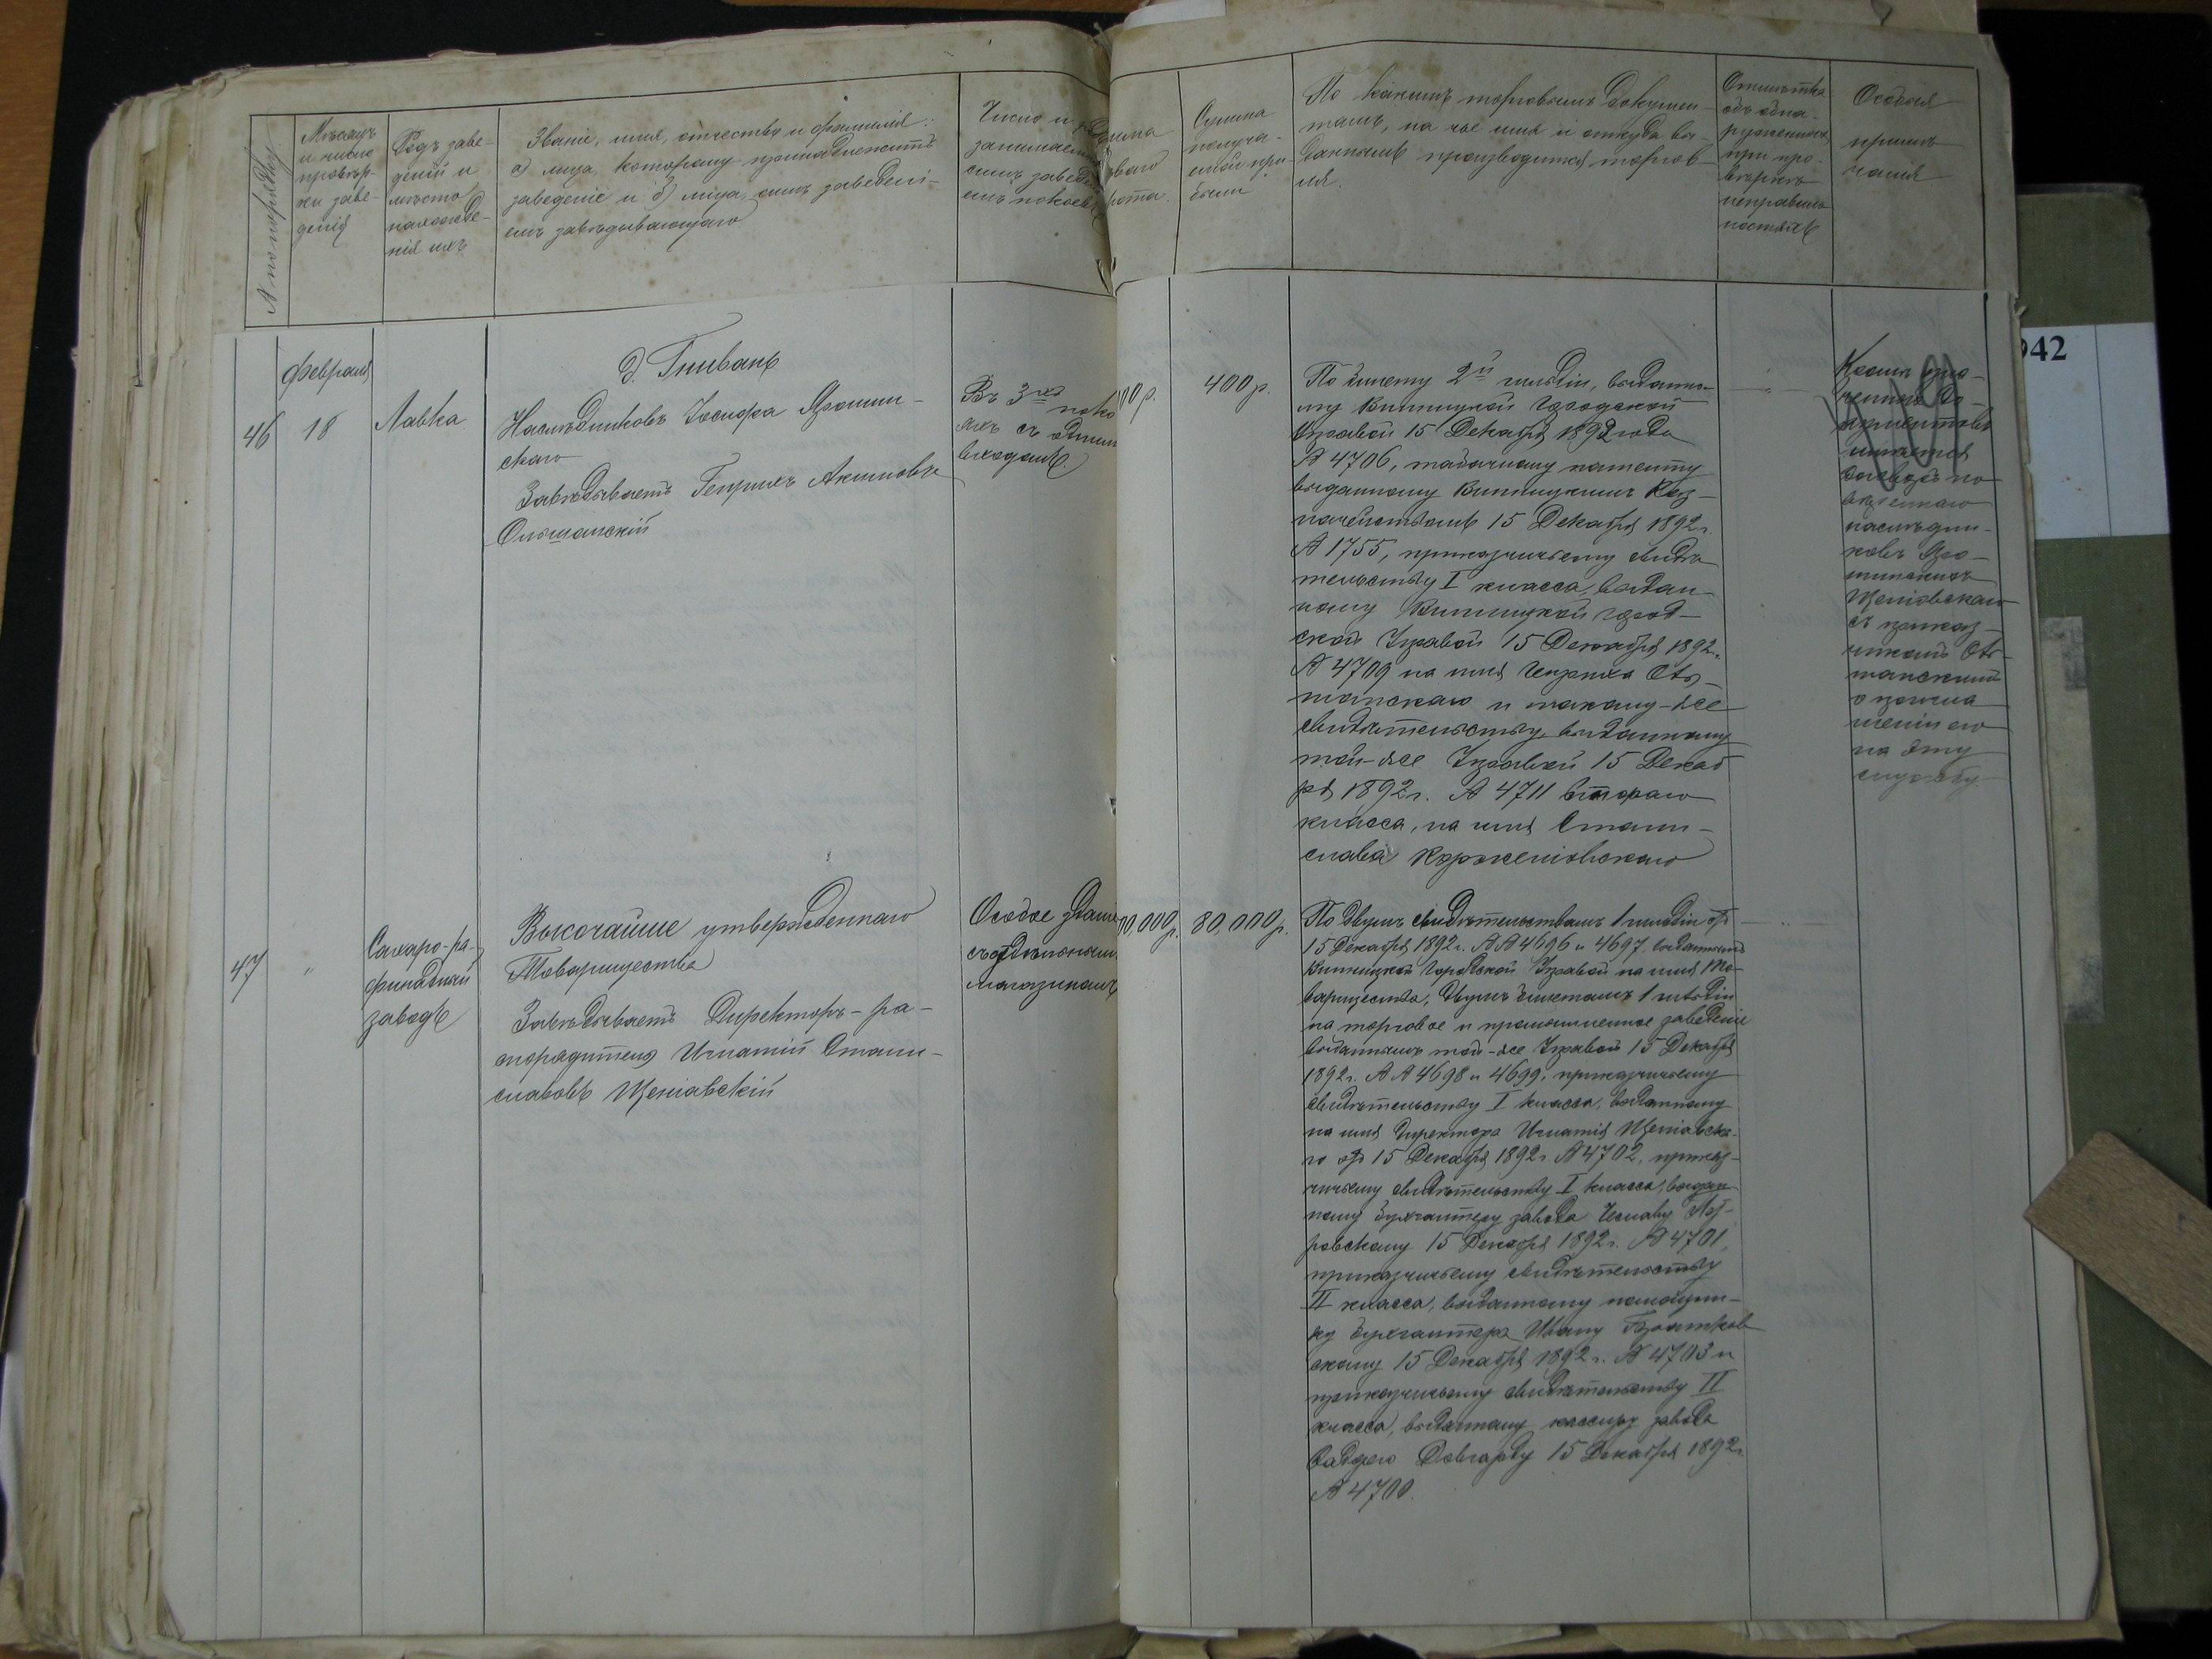 № по порядку
Мѣсяцъ
и число
провѣр-
ки заве-
денія
Родъ заве-
деній и
мѣсто
нахожде-
нія ихъ
Званіе, имя, отчество и фамилія:
а) лица, которому принадлежитъ
заведеніе и б) лица, симъ заведені-
емъ завѣдывающаго
Число и
занимаемыхъ
симъ заведе
емъ покоевъ
Сумма
получа-
емой при-
были
По какимъ торговымъ докумен-
тамъ, на чье имя и откуда вы-
даннымъ производится торгов-
ля.
Отмѣтка
объ обна-
руженныхъ
при про-
вѣркѣ
неправиль
ностяхъ
Особыя
примѣ-
чанія
Февраля
д. Гнивань
46
18
Лавка
Наслѣдниковъ Іосифа Ярошин-
скаго
Завѣдываетъ Генрихъ Акимовъ
Ольшанскій
Въ 3хъ поко
яхъ съ однимъ
входомъ.
00 р.
400 р.
По билету 2й гильдіи, выданно-
му Винницкой Городской
Управой 15 Декабря 1892 года
№ 4706, табачному патенту
выданному Винницкимъ Каз-
начействомъ 15 Декабря 1892 г.
№ 1755, приказчичьему свидѣ-
тельству I класса, выдан-
ному Винницкой Город-
ской Управой 15 Декабря 1892 г.
№ 4709 на имя Генриха Оль-
шанскаго и такому-же
свидѣтельству, выданному
той-же Управой 15 Декаб
ря 1892 г. № 4711 втораго
класса, на имя Стани-
слава Корженіовскаго
Кромѣ озна-
ченныхъ до-
кументовъ
имѣется
договоръ по-
вѣреннаго
наслѣдни-
ковъ Яро-
шинскихъ
Щеніовскаго
съ приказ-
чикомъ Оль-
шанскимъ
о пригла
шеніи его
на эту
службу.
47
"
Сахаро-ра-
финадный
заводъ
Высочайше утвержденнаго
Товарищества
Завѣдываетъ Директоръ-ра-
спорядитель Игнатій Стани-
славовъ Щеніавскій
Особое зданіе
съ отдѣльнымъ
магазиномъ
00,000 р.
80,000 р.
По двумъ свидѣтельствамъ 1 гильдіи отъ
15 Декабря 1892 г. №№ 4696 и 4697, выданнымъ
Винницкой Городской Управой на имя То-
варищества, двумъ билетамъ 1 гильдіи
на торговое и промышленное заведеніе
выданнымъ той-же Управой 15 Декабря
1892 г. №№ 4698 и 4699, приказчичьему
свидѣтельству I класса, выданному
на имя Директора Игнатія Щеніавска-
го отъ 15 Декабря 1892 г. № 4702, приказ-
чичьему свидѣтельству I класса, выдан-
ному бухгалтеру завода Чеславу
ровскому 15 Декабря 1892 г. № 4701,
приказчичьему свидѣтельству
II класса, выданному помощни-
ку бухгалтера Ивану
скому 15 Декабря 1892 г. № 4703 и
приказчичьему свидѣтельству II
класса, выданному кассиру завода
Довгарду 15 Декабря 1892 г.
№ 4700.
942